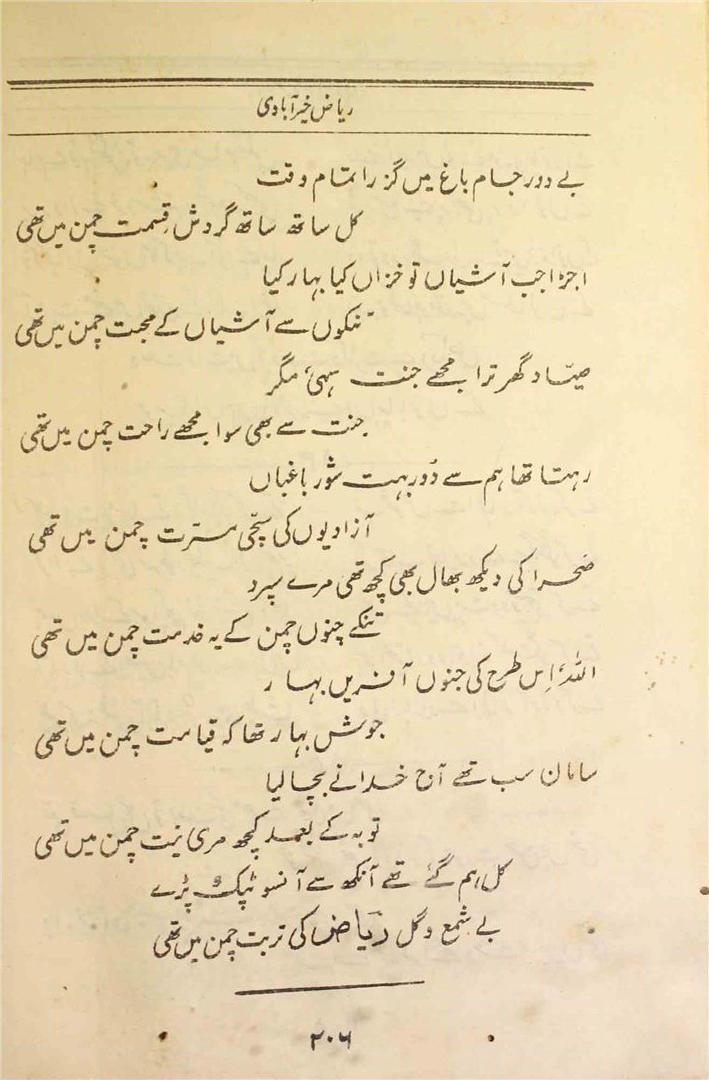 ریاض خیرآبادی
بے دور جام باغ میں گزرا تمام وقت
کل ساتھ ساتھ گردش قسمت چمن میں تھی
اجڑا جب آشیاں تو خزاں کیا بہار کیا
تنکوں سے آشیاں کے محبت چمن میں تھی
صیّاد گھر ترا مجھے جنت سہی مگر
جنت سے بھی سوا مجھے راحت چمن میں تھی
رہتا تھا ہم سے دُور بہت شورِ باغباں
آزادیوں کی سچّی مسرّت چمن میں تھی
صحرا کی دیکھ بھال بھی کچھ تھی مرے سپرد
تنکے چنوں چمن کے یہ خدمت چمن میں تھی
اللہ اِس طرح کی جنوں آفریں بہار
جوش بہار تھا کہ قیامت چمن میں تھی
سامان سب تھے آج خدا نے بچا لیا
توبہ کے بعد کچھ مری نیت چمن میں تھی
کل ہم گئے تھے آنکھ سے آنسو ٹپک پڑے
بے شمع و گل ریاض کی تربت چمن میں تھی
۲۰۶